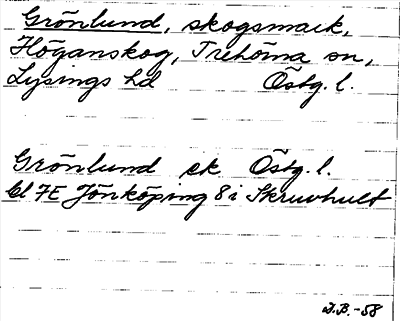 Grönlund, skogsmark,
Höganskog, Trehörna sn,
Lysings hd Östg. l.
Grönlund ek Östg. l.
bl 7E Jönköping 8 i Skruvhult
I.B.-58